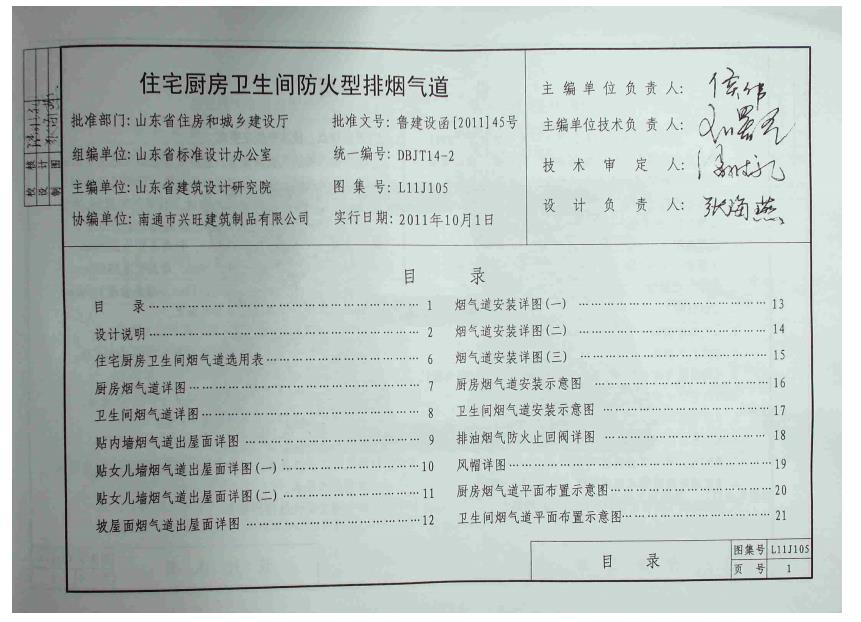 住宅厨房卫生间防火型排烟气道
批准部门: 山东省住房和城乡建设厅 批准文号: 鲁建设函[2011]45号
组编单位: 山东省标准设计办公室 统一编号: DBJT14-2
主编单位: 山东省建筑设计研究院 图集号: L11J105
协编单位: 南通市兴旺建筑制品有限公司 实行日期: 2011年10月1日
主编单位负责人:
主编单位技术负责人:
技术审定人:
设计负责人: 张海燕
校核
设计
制图
目 录
目 录 1
设计说明 2
住宅厨房卫生间烟气道选用表 6
厨房烟气道详图 7
卫生间烟气道详图 8
贴内墙烟气道出屋面详图 9
贴女儿墙烟气道出屋面详图(一) 10
贴女儿墙烟气道出屋面详图(二) 11
坡屋面烟气道出屋面详图 12
烟气道安装详图(一) 13
烟气道安装详图(二) 14
烟气道安装详图(三) 15
厨房烟气道安装示意图 16
卫生间烟气道安装示意图 17
排油烟气防火止回阀详图 18
风帽详图 19
厨房烟气道平面布置示意图 20
卫生间烟气道平面布置示意图 21
目 录
图集号 L11J105
页 号 1